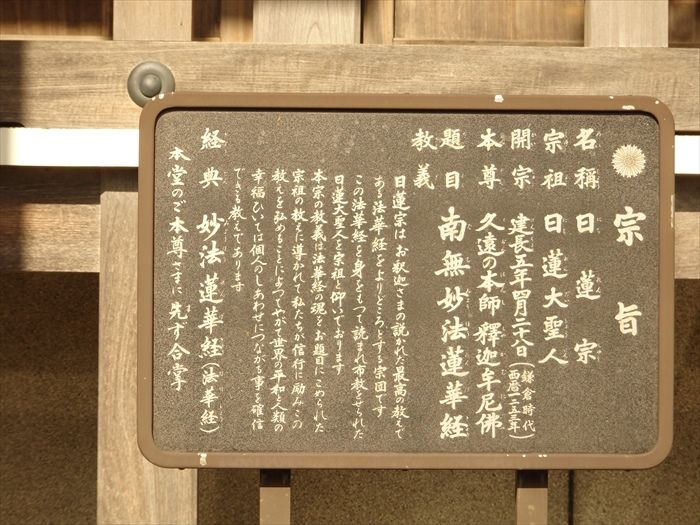 宗旨
名稱 日蓮宗
宗祖 日蓮大聖人
開宗 建長五年四月二十八日(鎌倉時代 西暦一二五三年)
本尊 久遠の本師釋迦牟尼佛
題目 南無妙法蓮華経
教義
日蓮宗はお釈迦さまの説かれた最高の教えで
ある法華経をよりどころとする宗団です
この法華経を身をもって読まれ布教をせられた
日蓮大聖人を宗祖と仰いでおります
本宗の教義は法華経の魂をお題目にこめられた
宗祖の教えに導かれて私たちが信行に励みこの
教えを弘めることによってやがて世界の平和と人類の
幸福ひいては個人のしあわせにつながる事を確信
できる教えであります
経典 妙法蓮華経(法華経)
本堂のご本尊さまに先ず合掌